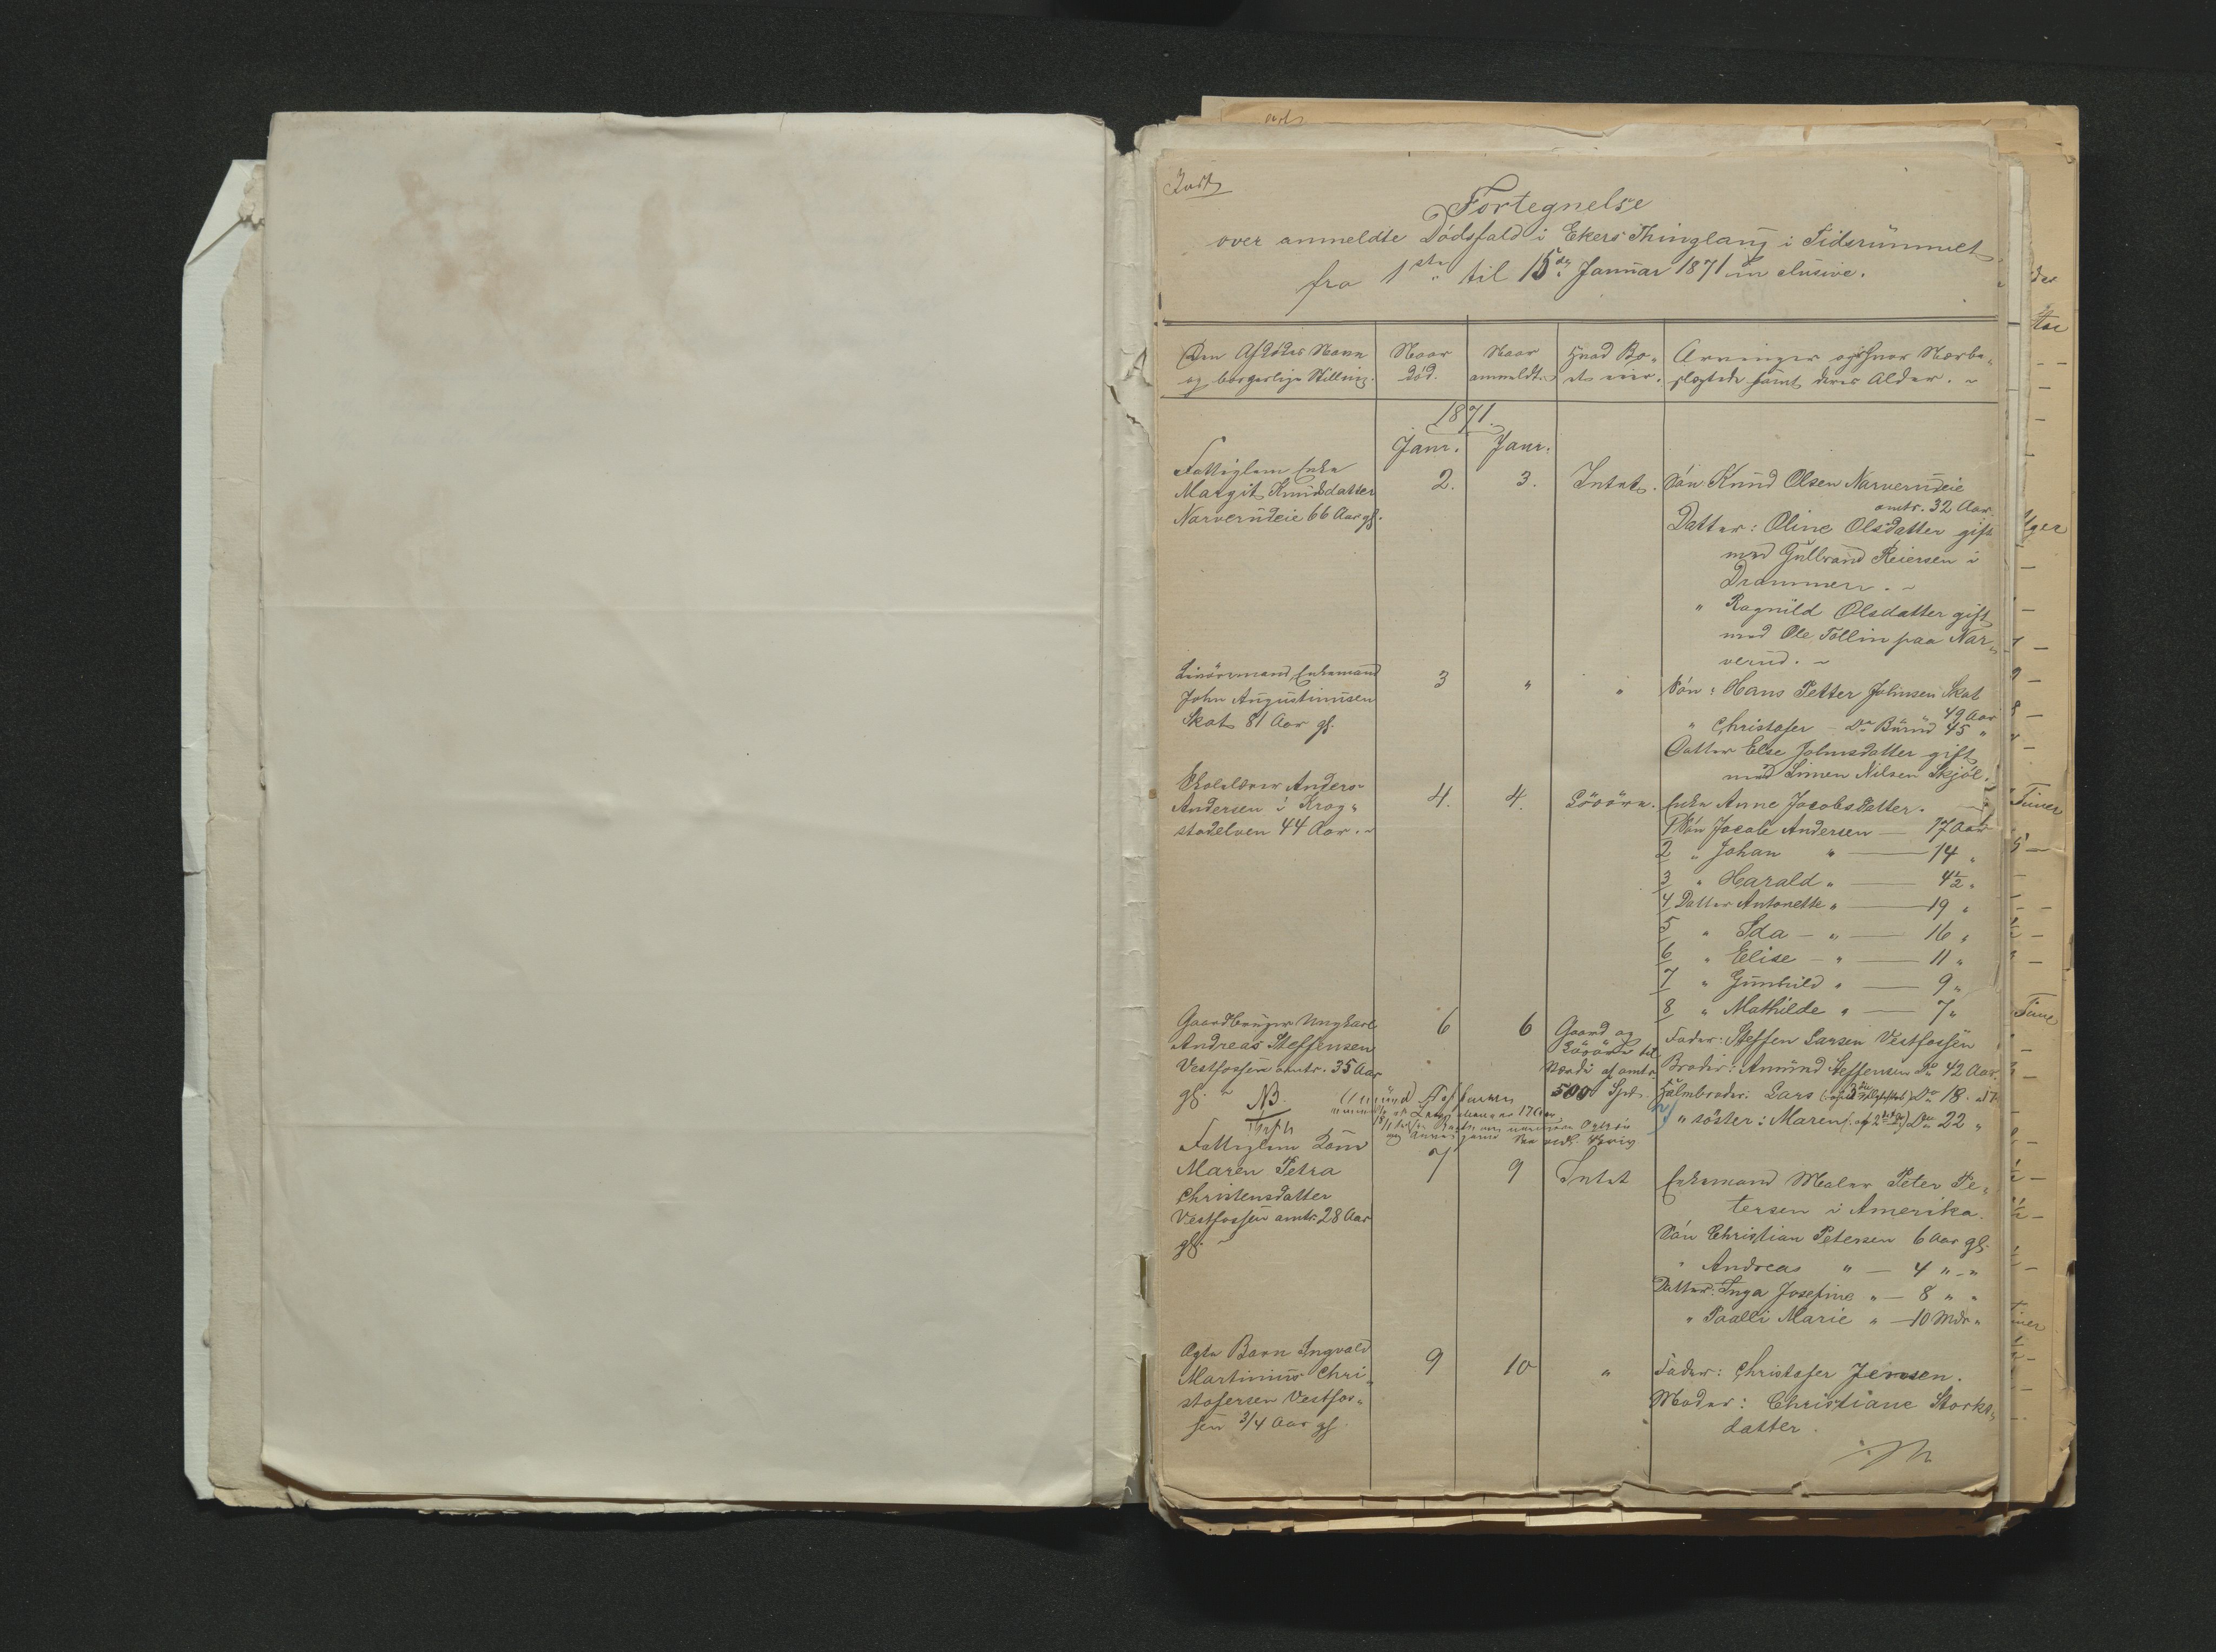 Indt
Fortegnelse
over anmeldte Dödsfald i Ekers Thinglaug i Tidsrummet
fra 1ste til 15de Januar 1871 inclusive.
Den Afdödes Navn
og borgerlige Stilling.
Naar
död.
Naar
anmeldt.
Hvad Bo-
et eier.
Arvinger og hvor Nærbe-
slægtede samt deres Alder.
1871.
Janr. Janr.
Fattiglem Enke
Margit Knudsdatter
Narverudeie 66 Aar gl.
2. 3. Intet.
Sön Knud Olsen Narverudeie
omtr. 32 Aar.
Datter: Oline Olsdatter gift
med Gulbrand Reiersen i
Drammen.
" Ragnild Olsdatter gift
med Ole Tollin paa Nar-
verud.
Enkemand
John Augustinusen
Skat 81 Aar gl.
3 " "
Sön: Hans Petter Johnsen Skat
49 Aar
" Christofer - Do Burud 45 "
Datter Else Johnsdatter gift
med Simen Nilsen Skjöl.
Skolelærer Anders
Andersen i Krog-
stadelven 44 Aar.
4. 4. Lösöre.
Enke Anne Jacobsdatter.
1 Sön Jacob Andersen — 17 Aar
2 " Johan " — 14 "
3 " Harald " — 4½ "
4 Datter Antonette " — 19 "
5 " Ida - " — 16 "
6 " Elise - " — 11 "
7 " Gunhild " — 9 "
8 " Mathilde " — 7 "
Gaardbruger Ungkarl
Andreas Steffensen
Vestfossen omtr. 35 Aar
gl.
6 6 Gaard og
Lösöre til
Værdi af omtr
500 Spd.
Fader: Steffen Larsen Vestfossen
Broder: Amund Steffensen Do 42 Aar.
Halvbroder: Lars Do 18.
" söster: Maren Do 22 "
NB.
Fattiglem Kone
Maren Petra
Christensdatter
Vestfossen omtr. 28 Aar
gl.
7 9 Intet
Enkemand Maler Peter Pe-
tersen i Amerika.
Sön Christian Petersen 6 Aar gl.
" Andreas " — 4 " - "
Datter: Inga Josefine " — 8 " "
" Paalli Marie " — 10 Mdr "
Ægte Barn Ingvald
Martinius Chri-
stofersen Vestfos-
sen 3/4 Aar gl.
9 10 "
Fader: Christofer Jensen.
Moder: Christiane Storks-
datter.